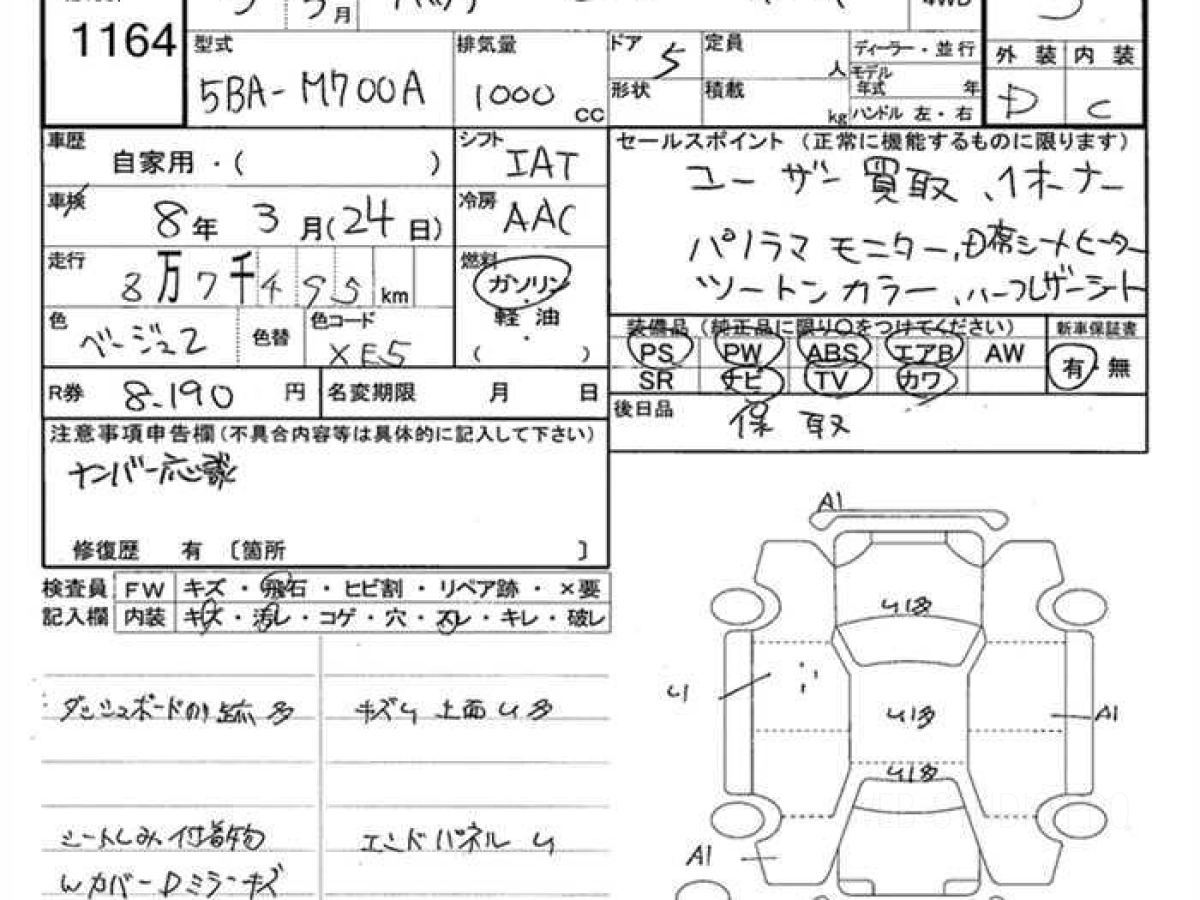 1164
月
4WD
型式
5BA-M700A
排気量
1000
CC
ドア
5
定員
人
形状
積載
kg
ディーラー・並行
モデル
年式
年
ハンドル 左・右
外装
内装
D
C
車歴
自家用・(
)
シフト
IAT
セールスポイント（正常に機能するものに限ります）
ユーザー買取、イホーナー
パノラマモニター、D席シートヒーター
ツートンカラー、ハーフレザーシート
車検
8年 3月(24日)
冷房
AAC
走行
8万7千495km
燃料
ガソリン
・
軽油
・
(
)
色
ベージュ2
色替
色コード
XE5
装備品（純正品に限り○をつけてください）
PS
PW
ABS
エアB
AW
SR
ナビ
TV
カワ
新車保証書
有・無
R券
8.190
円
名変期限
月
日
後日品
保 取
注意事項申告欄（不具合内容等は具体的に記入して下さい）
ナンバー応談
修復歴 有 〔箇所 〕
検査員
FW
キズ・飛石・ヒビ割・リペア跡・×要
記入欄
内装
キズ・汚レ・コゲ・穴・スレ・キレ・破レ
ダッシュボードのり跡多
キズU 上面U多
シートしみ、付着物
エンドパネルU
WカバーDミラーキズ
A1
U1多
U1
U1多
A1
U1多
A1